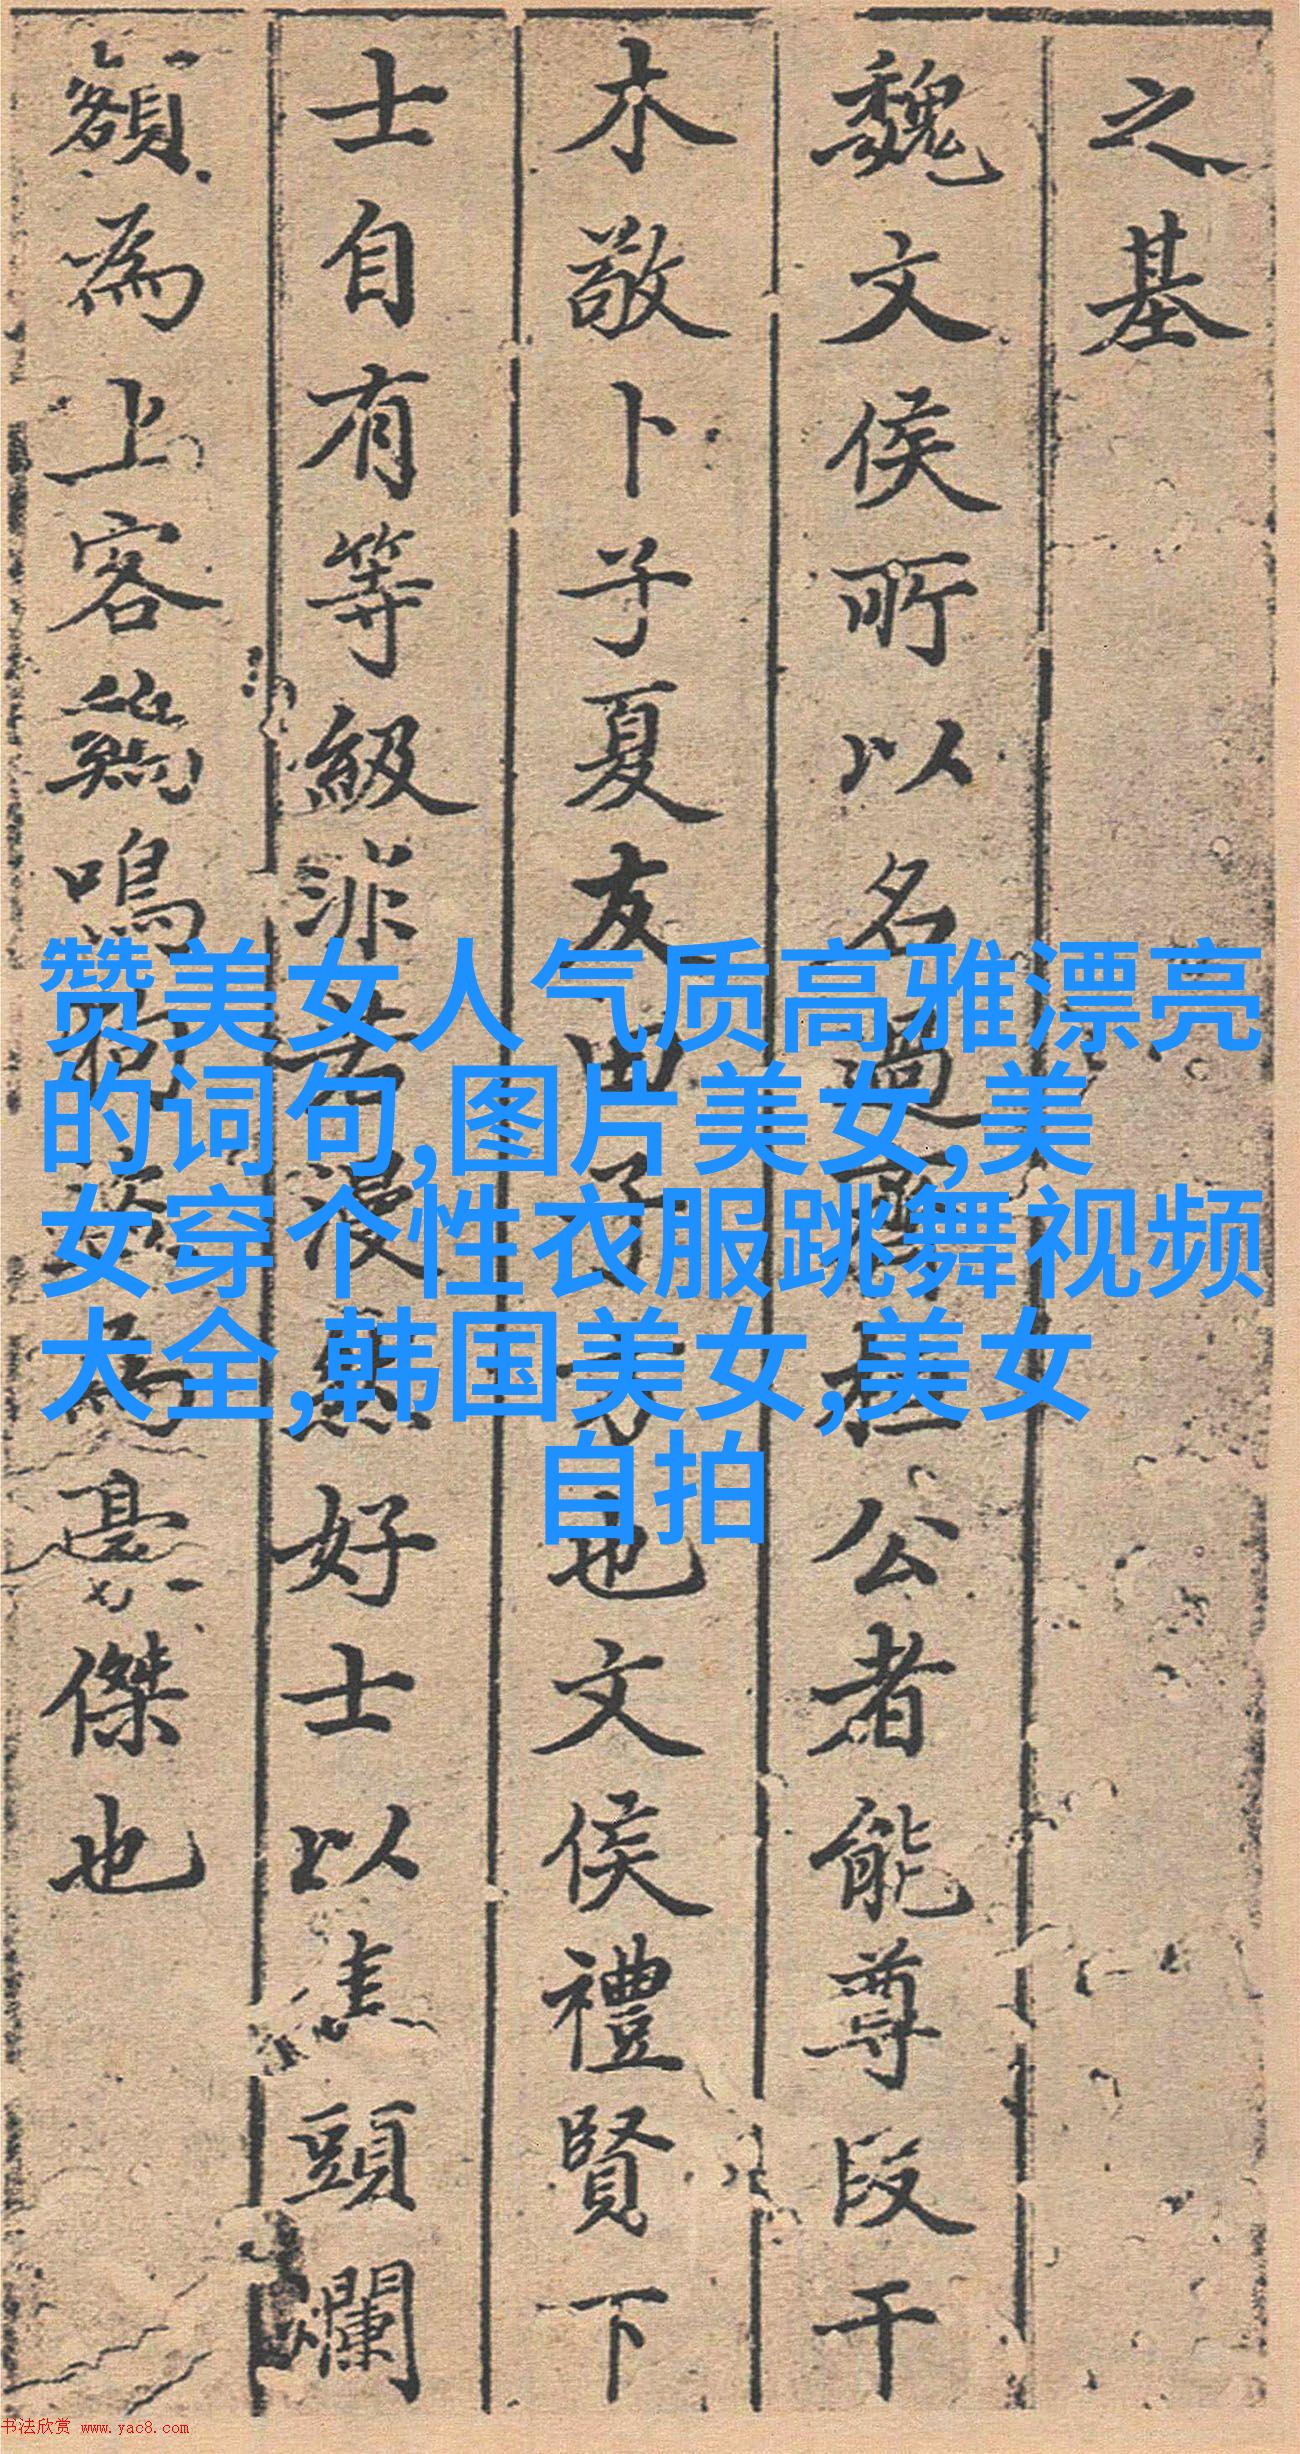 之基
魏文侯所以名過齊桓公者能尊段干
木敬卜子夏友田子方也文侯禮賢下
士自有等級非若漫然好士以焦頭爛
額為上客雞鳴狗盜為豪傑也
赞美女人气质高雅漂亮
的词句,图片美女,美
女穿个性衣服跳舞视频
大全,韩国美女,美女
自拍
书法欣赏 www.yac8.com